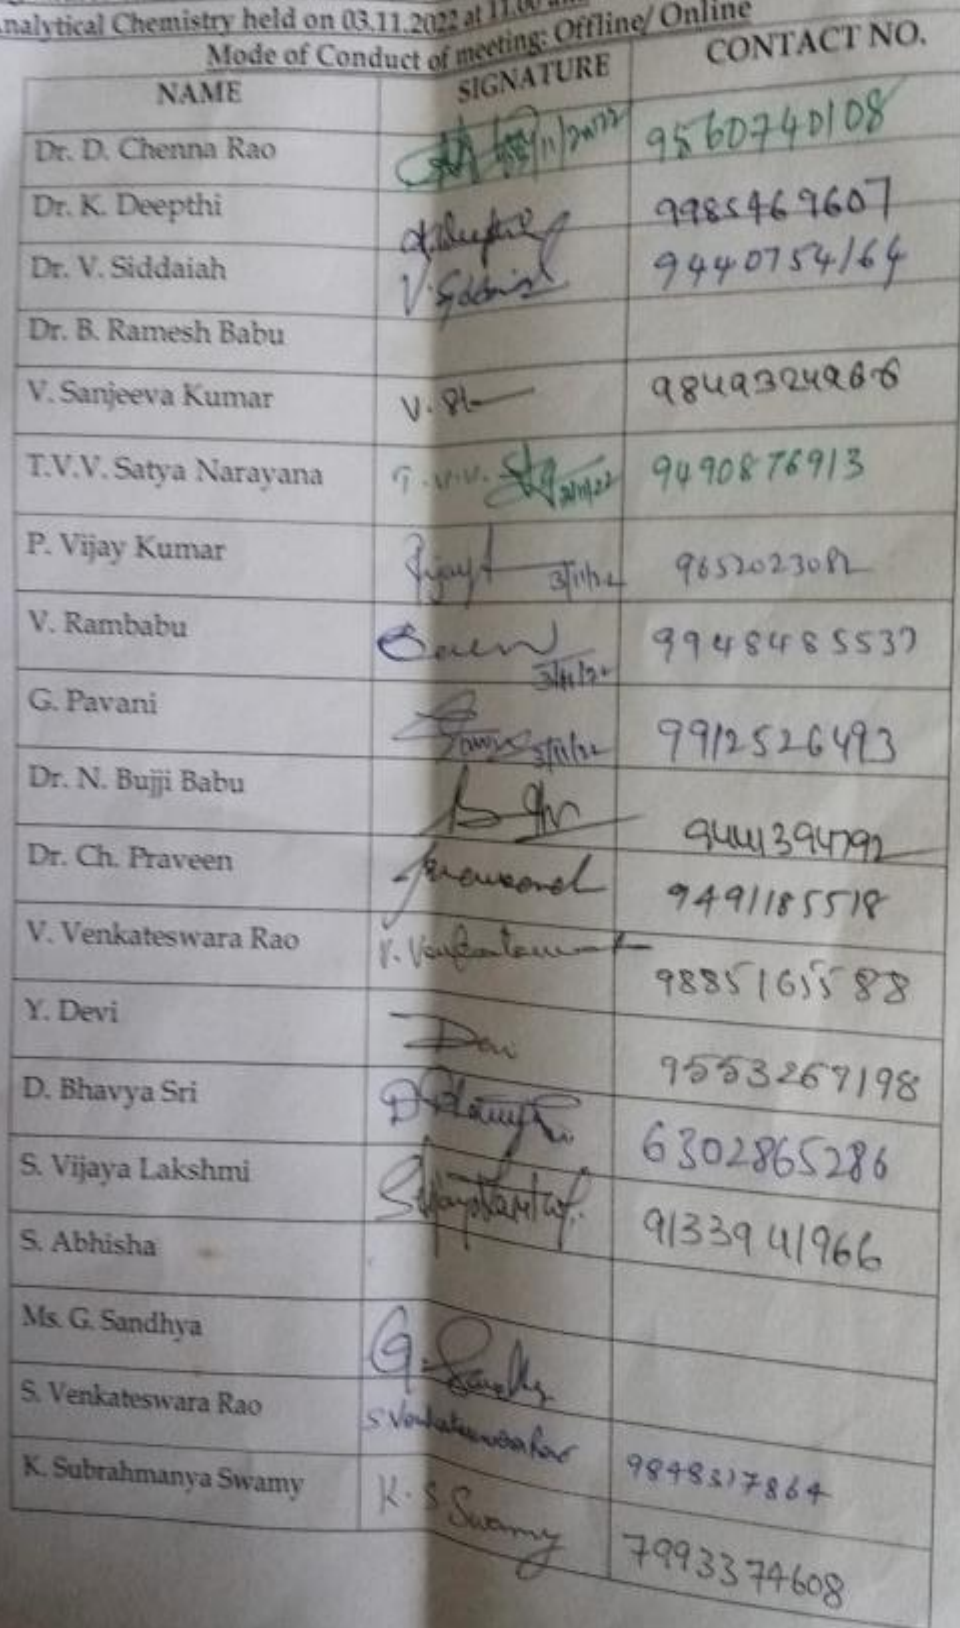 Analytical Chemistry held on 03.11.2022 at 11.00
Mode of Conduct of meeting: Offline/ Online
NAME SIGNATURE CONTACT NO.
Dr. D. Chenna Rao 03/11/2022 9560740108
Dr. K. Deepthi K. Deepthi 9985469607
Dr. V. Siddaiah V. Siddaiah 9440754164
Dr. B. Ramesh Babu
V. Sanjeeva Kumar V. 9849324966
T.V.V. Satya Narayana T.V.V. 9490876913
P. Vijay Kumar 3/11/22 9652023082
V. Rambabu 3/11/22 9948485537
G. Pavani 3/11/22 9912526493
Dr. N. Bujji Babu 9441394792
Dr. Ch. Praveen 9491185518
V. Venkateswara Rao 9885161588
Y. Devi Devi 9553267198
D. Bhavya Sri 6302865286
S. Vijaya Lakshmi 9133941966
S. Abhisha
Ms. G. Sandhya G. Sandhya
S. Venkateswara Rao S Venkateswara Rao 9848317864
K. Subrahmanya Swamy K. S Swamy 7993374608